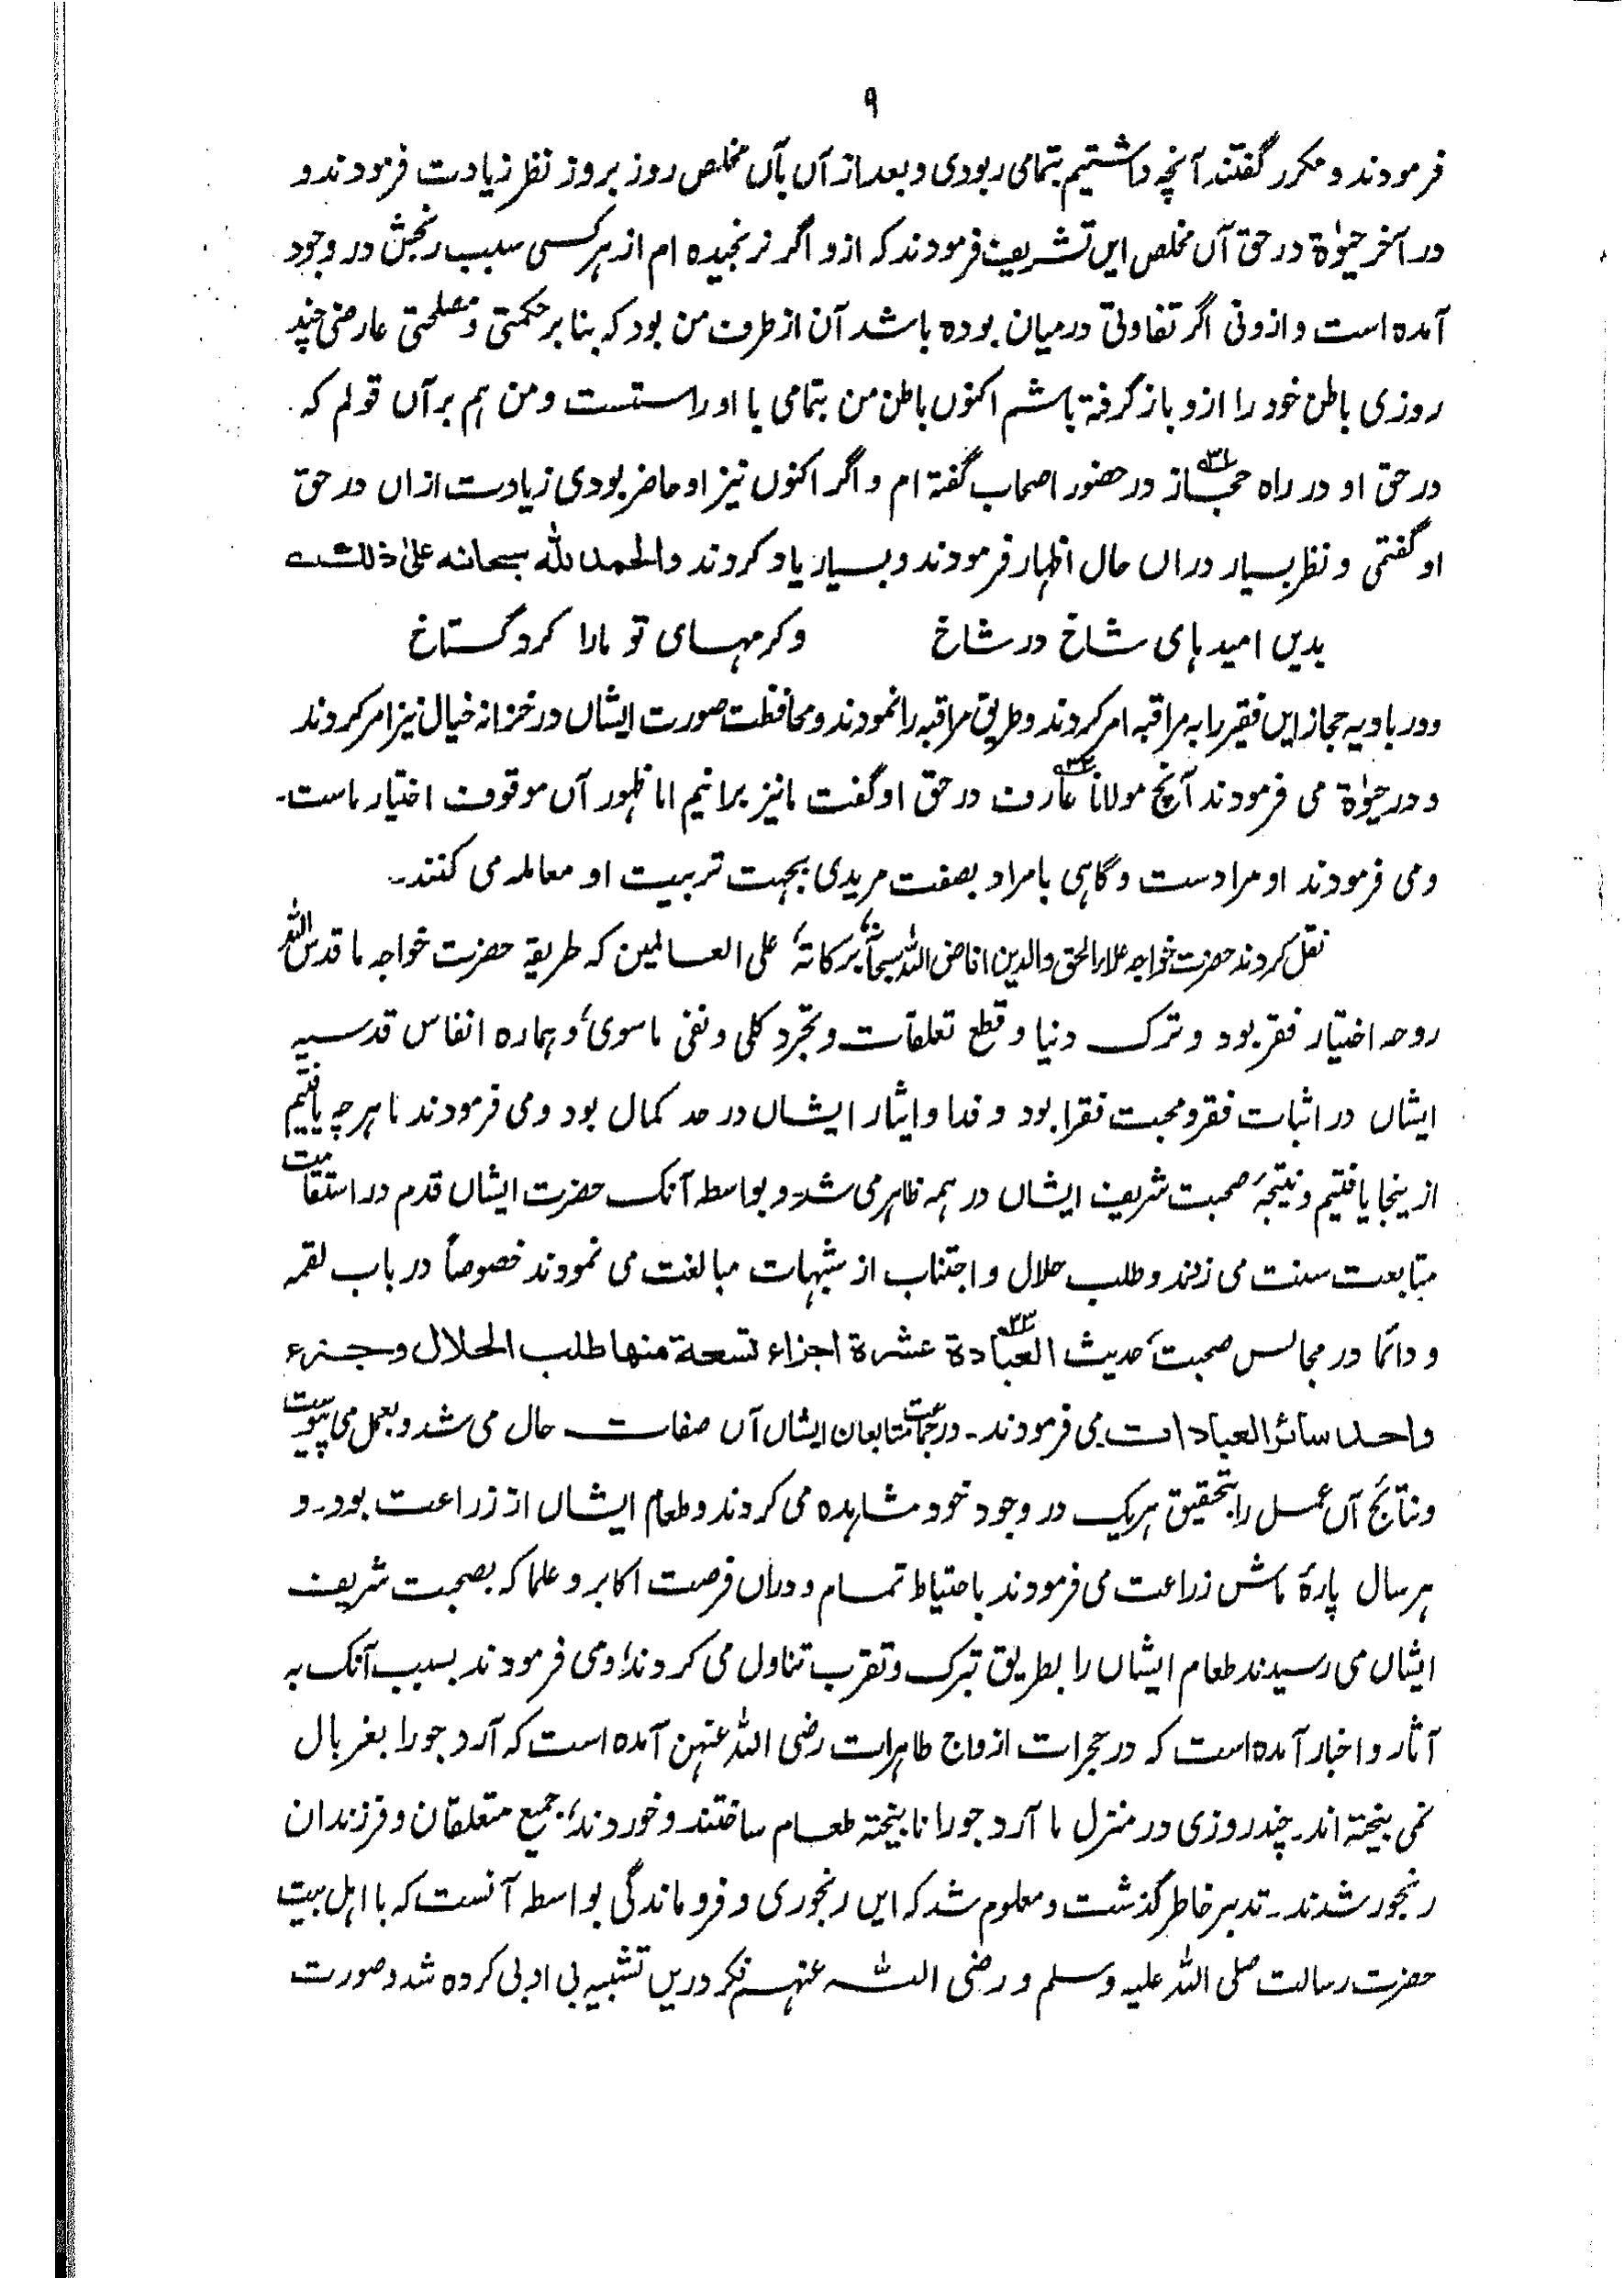 ۹
فرمودند و مکرر گفتند آنچه داشتیم بتمامی ربودی و بعد از آں بآں مخلص روز بروز نظر زیادت فرمودند و
در آخر حیوٰة در حق آں مخلص ایں تشریف فرمودند کہ ازو اگر نرنجیده ام از ہر کسی سبب رنجش در وجود
آمده است و ازونی اگر تفاوتی درمیان بوده باشد آن از طرف من بود کہ بنا بر حکمتی و مصلحتی عارضی چند
روزی باطن خود را ازو باز گرفته باشم اکنوں باطن من بتمامی با او راستست و من ہم بر آں قولم کہ
در حق او در راه حجاز۳۱ در حضور اصحاب گفته ام و اگر اکنوں نیز او حاضر بودی زیادت ازاں در حق
او گفتمی و نظر بسیار دراں حال اظہار فرمودند و بسیار یاد کردند والحمد للّٰه سبحانه علیٰ ذلك
بدیں امید ہای شاخ در شاخ وکرمہای تو مارا کرد گستاخ
و در بادیہ حجاز ایں فقیر را به مراقبه امر کردند و طریق مراقبه را نمودند و محافظت صورت ایشاں در خزانه خیال نیز امر کردند
و در حیوٰة می فرمودند آنچ مولانا عارف۳۲ در حق او گفت ما نیز برانیم اما ظہور آں موقوف اختیار ماست۔
و می فرمودند او مرادست و گاہی بامراد بصفت مریدی بجہت تربیت او معاملہ می کنند۔
نقل کردند حضرت خواجه علاء الحق والدین افاض اللّٰه سبحانہٗ برکاتهٗ علی العالمین کہ طریقہ حضرت خواجه ما قدس اللّٰه
روحه اختیار فقر بود و ترک دنیا و قطع تعلقات و تجرد کلی و نفی ماسویٰ، و ہماره انفاس قدسیہ
ایشاں در اثبات فقر و محبت فقرا بود و فدا و ایثار ایشاں در حد کمال بود و می فرمودند ما ہر چه یافتیم
ازینجا یافتیم و نتیجۂ صحبت شریف ایشاں در ہمہ ظاہر می شد، و بواسطہ آنک حضرت ایشاں قدم در استقامت
متابعت سنت می زدند و طلب حلال و اجتناب از شبہات مبالغت می نمودند خصوصاً در باب لقمہ
و دائماً در مجالس صحبت، حدیث العبادة۳۳ عشرة اجزاء تسعة منها طلب الحلال و جزء
واحد سائر العبادات می فرمودند۔ در جماعت متابعان ایشاں آں صفات حال می شد و بعمل می پیوست
و نتائج آں عمل را بتحقیق ہریک در وجود خود مشاہده می کردند و طعام ایشاں از زراعت بود۔ و
ہر سال پارۂ ماش زراعت می فرمودند باحتیاط تمام و دراں فرصت اکابر و علما کہ بصحبت شریف
ایشاں می رسیدند طعام ایشاں را بطریق تبرک و تقرب تناول می کردند، و می فرمودند بسبب آنک به
آثار و اخبار آمده است کہ در حجرات ازواج طاہرات رضی اللّٰه عنہن آمده است کہ آرد جو را بغربال
نمی بیختہ اند۔ چند روزی در منزل ما آرد جو را نا بیختہ طعام ساختند و خوردند، جمیع متعلقان و فرزندان
رنجور شدند۔ تدبر خاطر گذشت و معلوم شد کہ ایں رنجوری و فرو ماندگی بواسطہ آنست کہ با اہل بیت
حضرت رسالت صلی اللّٰه علیه وسلم و رضی اللّٰه عنہم دریں تشبیہ بی ادبی کرده شد و صورت